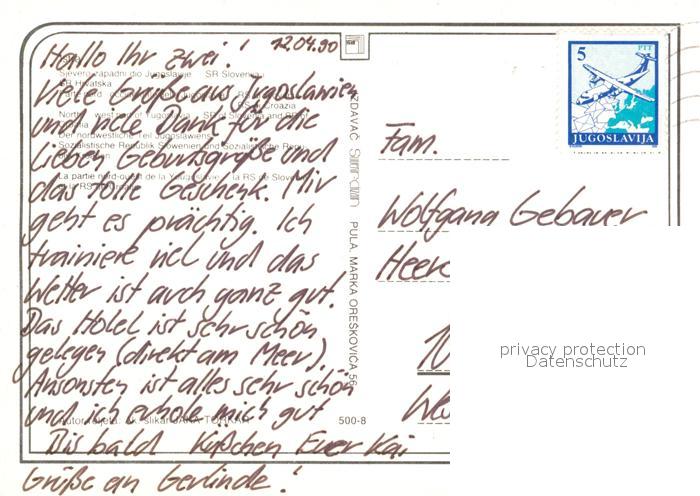 12.04.90
Hallo Ihr zwei!
Viele Grüße aus Jugoslawien
und vielen Dank für die
Lieben Geburtsgrüße und
das tolle Geschenk. Mir
geht es prächtig. Ich
trainiere viel und das
Wetter ist auch ganz gut.
Das Hotel ist sehr schön
gelegen (direkt am Meer).
Ansonsten ist alles sehr schön
und ich erhole mich gut
Bis bald Küßchen Euer Kai
Grüße an Gerlinde!
Sjevero-zapadni dio Jugoslavije SR Slovenija i
SR Hrvatska
Der nordwestliche Teil Jugoslawiens
Sozialistische Republik Slowenien und Sozialistische Repu-
La partie nord-ouest de la Yougoslavie la RS de Slovenie
500-8
IZDAVAČ
PULA, MARKA OREŠKOVIĆA 56
5
PTT
JUGOSLAVIJA
Fam.
Wolfgang Gebauer
Heer
privacy protection
Datenschutz